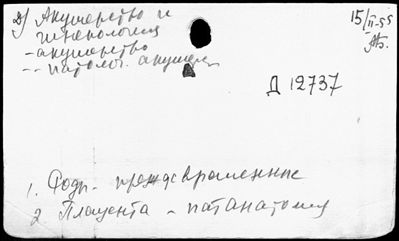 2) Акушерство и
гинекология
- акушерство
-- патолог. акушер.
15/II-55
Д 12737
1. Роды - преждевременные
2 Плацента - патанатомия